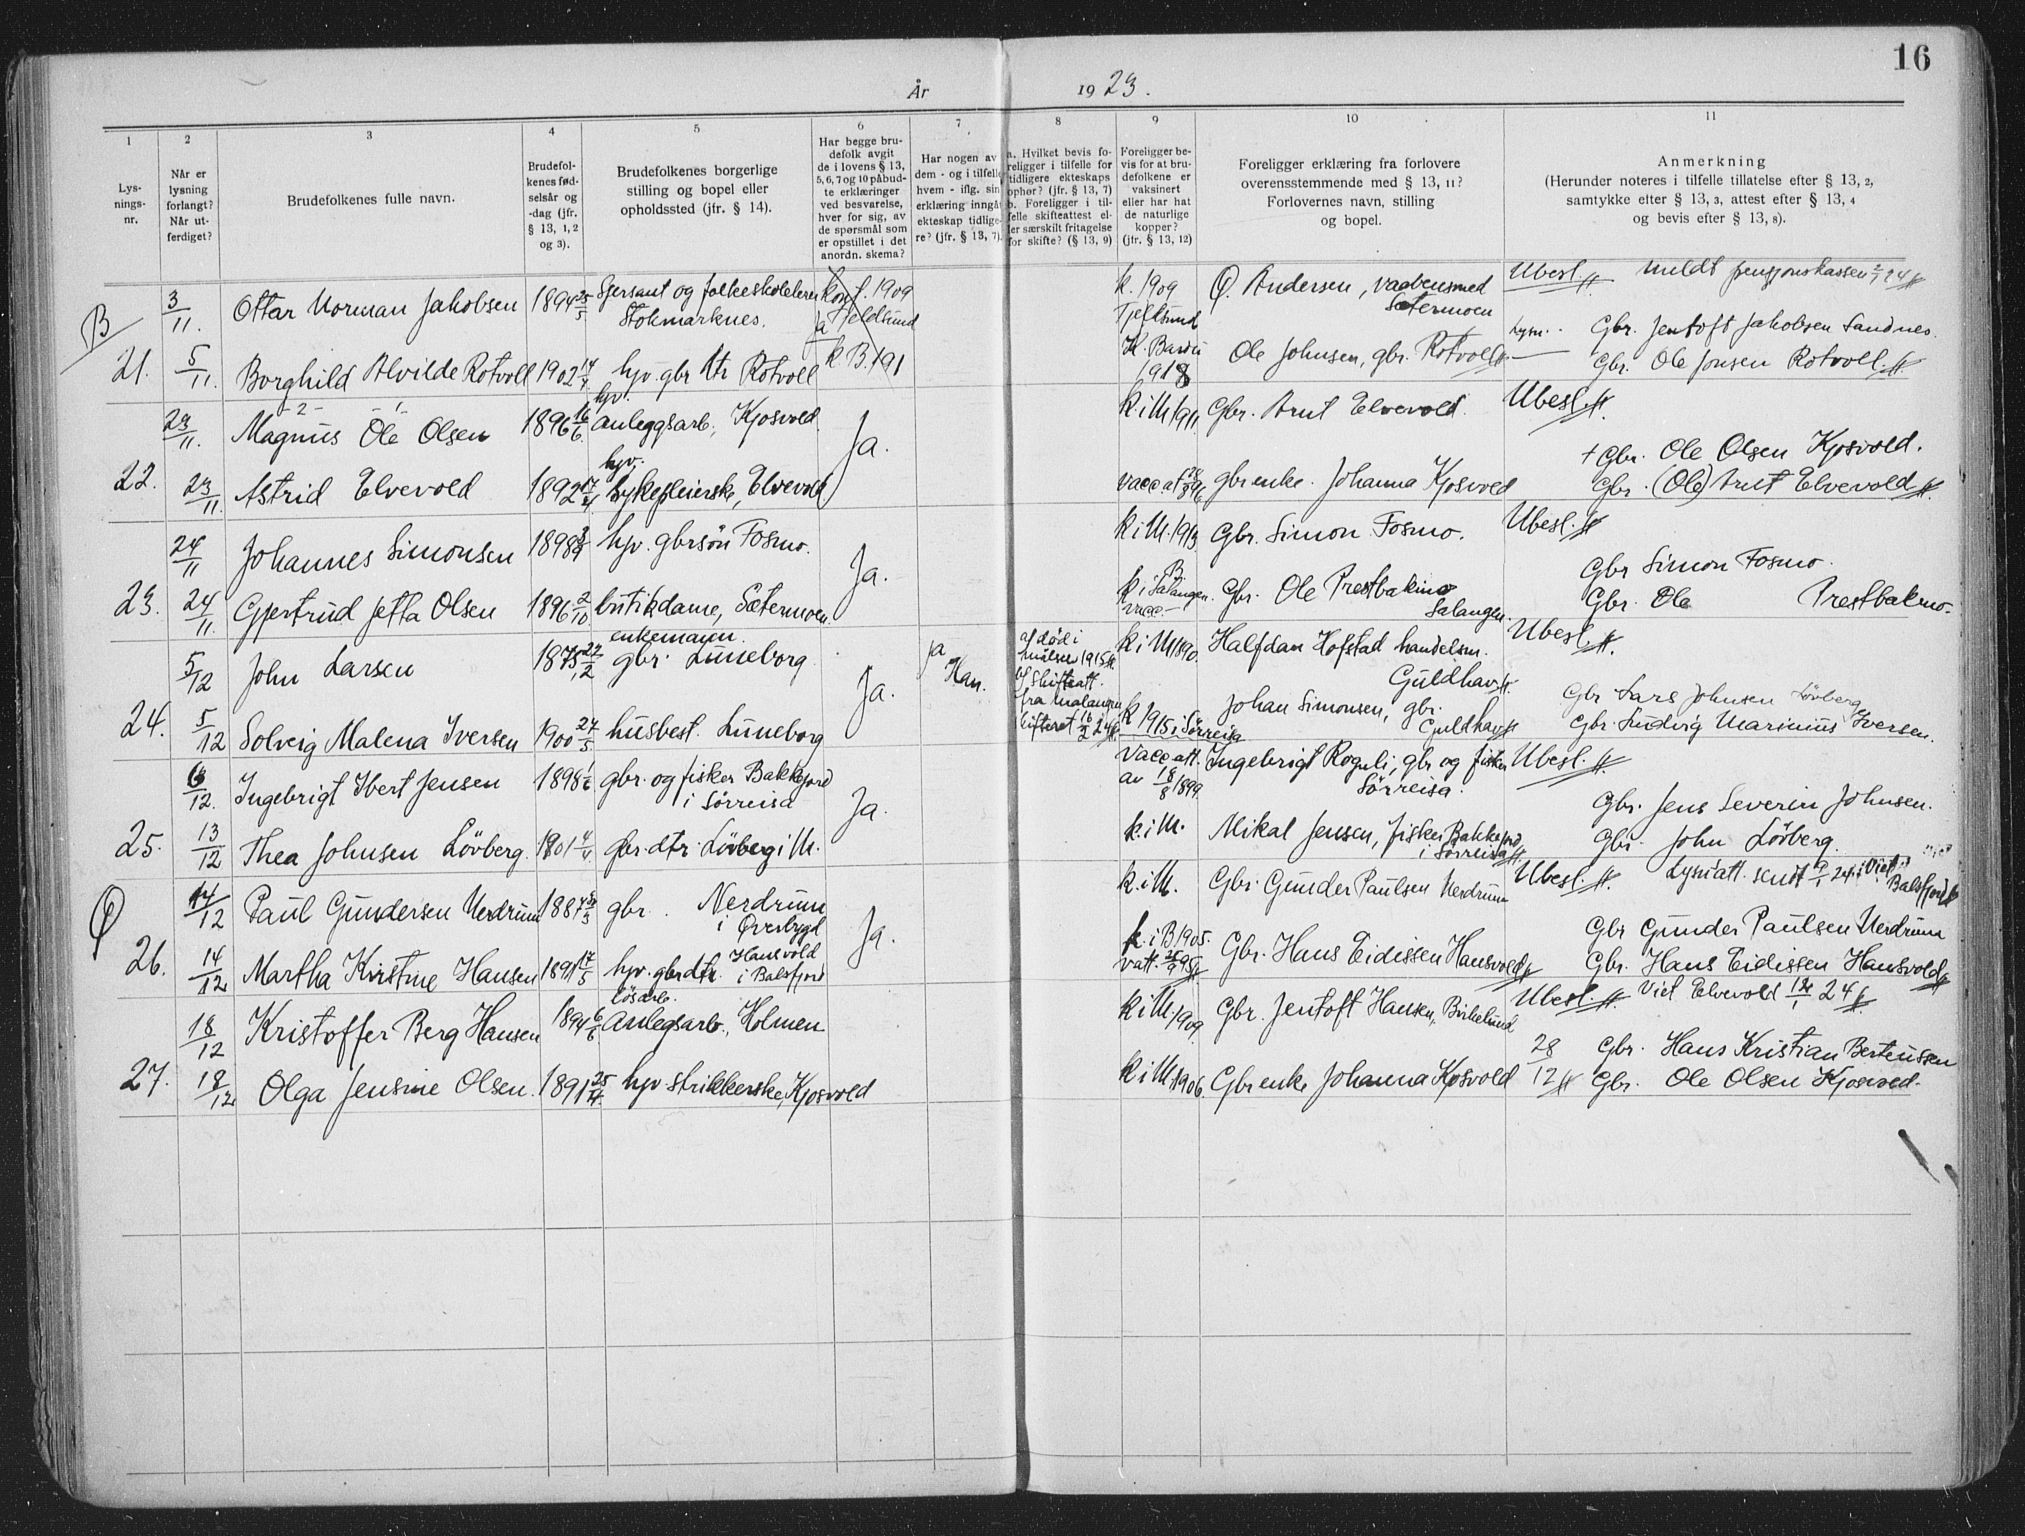 16
År 1923.
1 2 3 4 5 6 7 8 9 10 11
Lys-
nings-
nr.
Når er
lysning
forlangt?
Når ut-
ferdiget?
Brudefolkenes fulle navn.
Brudefol-
kenes fød-
selsår og
-dag (jfr.
§ 13, 1, 2
og 3).
Brudefolkenes borgerlige
stilling og bopel eller
opholdssted (jfr. § 14).
Har begge bru-
defolk avgit
de i lovens § 13,
5, 6, 7 og 10 påbud-
te erklæringer
ved besvarelse,
hver for sig, av
de spørsmål som
er opstillet i det
anordn. skema?
Har nogen av
dem - og i tilfelle
hvem - iflg. sin
erklæring inngåt
ekteskap tidlige-
re? (jfr. § 13, 7).
a. Hvilket bevis fo-
religger i tilfelle for
tidligere ekteskaps
ophør? (jfr. § 13, 7)
b. Foreligger i til-
felle skifteattest el-
ler særskilt fritagelse
for skifte? (§ 13, 9)
Foreligger be-
vis for at bru-
defolkene er
vaksinert
eller har hat
de naturlige
kopper?
(jfr. § 13, 12)
Foreligger erklæring fra forlovere
overensstemmende med § 13, 11?
Forlovernes navn, stilling
og bopel.
Anmerkning
(Herunder noteres i tilfelle tillatelse efter § 13, 2,
samtykke efter § 13, 3, attest efter § 13, 4
og bevis efter § 13, 8).
B 3/11. Ottar Norman Jakobsen 1894 25/5 Sersant og folkeskolelærer Stokmarknes. konf. 1909 Fjeldsund ja k. 1909 Fjellsund O. Andersen, vaabensmed Sætermoen Ubesl. meldt pensjonskassen 2/1 24
Lysn. Gbr. Jentoft Jakobsen Sandnes.
21. 5/11. Borghild Alvilde Rotvoll 1902 14/7 hjv. gbr dtr Rotvoll k B. 191 K. Bardu 1918 Ole Johnsen, gbr. Rotvoll Gbr. Ole Jonsen Rotvoll.
23/11. Magnus Ole Olsen 1896 16/6 hjv. anleggsarb., Kjosvold. Ja. k. i M. 1911. Gbr. Arnt Elvevold. Ubesl.
+ Gbr. Ole Olsen Kjosvold.
22. 23/11. Astrid Elvevold 1892 17/4 hjv. sykepleierske, Elvevold vacc. at 28/8 96 gbrenke. Johanna Kjosvold Gbr. (Ole) Arnt Elvevold
24/11 Johannes Simonsen 1898 hjv. gbrsøn Fosmo. Ja. k i M. 1913 Gbr. Simon Fosmo. Ubesl.
Gbr Simon Fosmo.
23. 24/11. Gjertrud Jetta Olsen 1896 2/10 butikdame, Sætermoen. k i Salangen. vacc— Gbr. Ole Prestbakmo Salangen. Gbr. Ole Prestbakmo.
5/12 John Larsen 1875 27/12 enkemann. gbr. Luneborg. Ja. ja Han. af død i Målselv 1915 bf skifteatt. fra Malangen utstedt 16/2 24 k i M 1890. Halfdan Hofstad handelsm. Guldhav Ubesl.
Gbr Lars Johnsen Lövberg
24. 5/12 Solveig Malena Iversen 1900 27/5 husbest. Luneborg k 1915 i Sørreisa Johan Simonsen, gbr. Guldhav Gbr. Ludvig Marinius Iversen.
6/12. Ingebrigt Ibert Jensen 1898 1/6 gbr. og fisker Bakkejord i Sørreisa Ja. Vacc att. av 18/8 1899. Ingebrigt Rognli, gbr og fisker Sørreisa. Ubesl.
Gbr. Jens Severin Johnsen.
25. 13/12 Thea Johnsen Lövberg. 1901 4/11 gbr.dtr. Lövberg i M. k. i M. Mikal Jensen, fisker Bakkejord, i Sørreisa Gbr. John Lövberg.
Ø 14/12 Paul Gundersen Nerdrum 1887 gbr. Nerdrum i Øverbygd Ja. k. i M. Gbr. Gunder Paulsen Nerdrum Ubesl. Lysn att. sendt 2/1 24. Viet i Balsfjord
Gbr Gunder Paulsen Nerdrum
26. 14/12 Martha Kirstine Hansen 1891 17/5 hjv. gbrdtr. Hansvold i Balsfjord k. i B 1905. vatt. 25/9 95 Gbr. Hans Eidissen Hansvold Gbr. Hans Eidissen Hansvold
18/12 Kristoffer Berg Hansen 1894 6/6 løsarb. Anlegsarb., Holmen k i M. 1909. Gbr. Jentoft Hansen, Birkelund Ubesl. Viet Elvevold 12/1 24
28/12 Gbr. Hans Kristian Berteussen
27. 18/12 Olga Jensine Olsen. 1891 25/11 hjv strikkerske, Kjosvold k i M. 1906. Gbrenke Johanna Kjosvold Gbr. Ole Olsen Kjosvold.